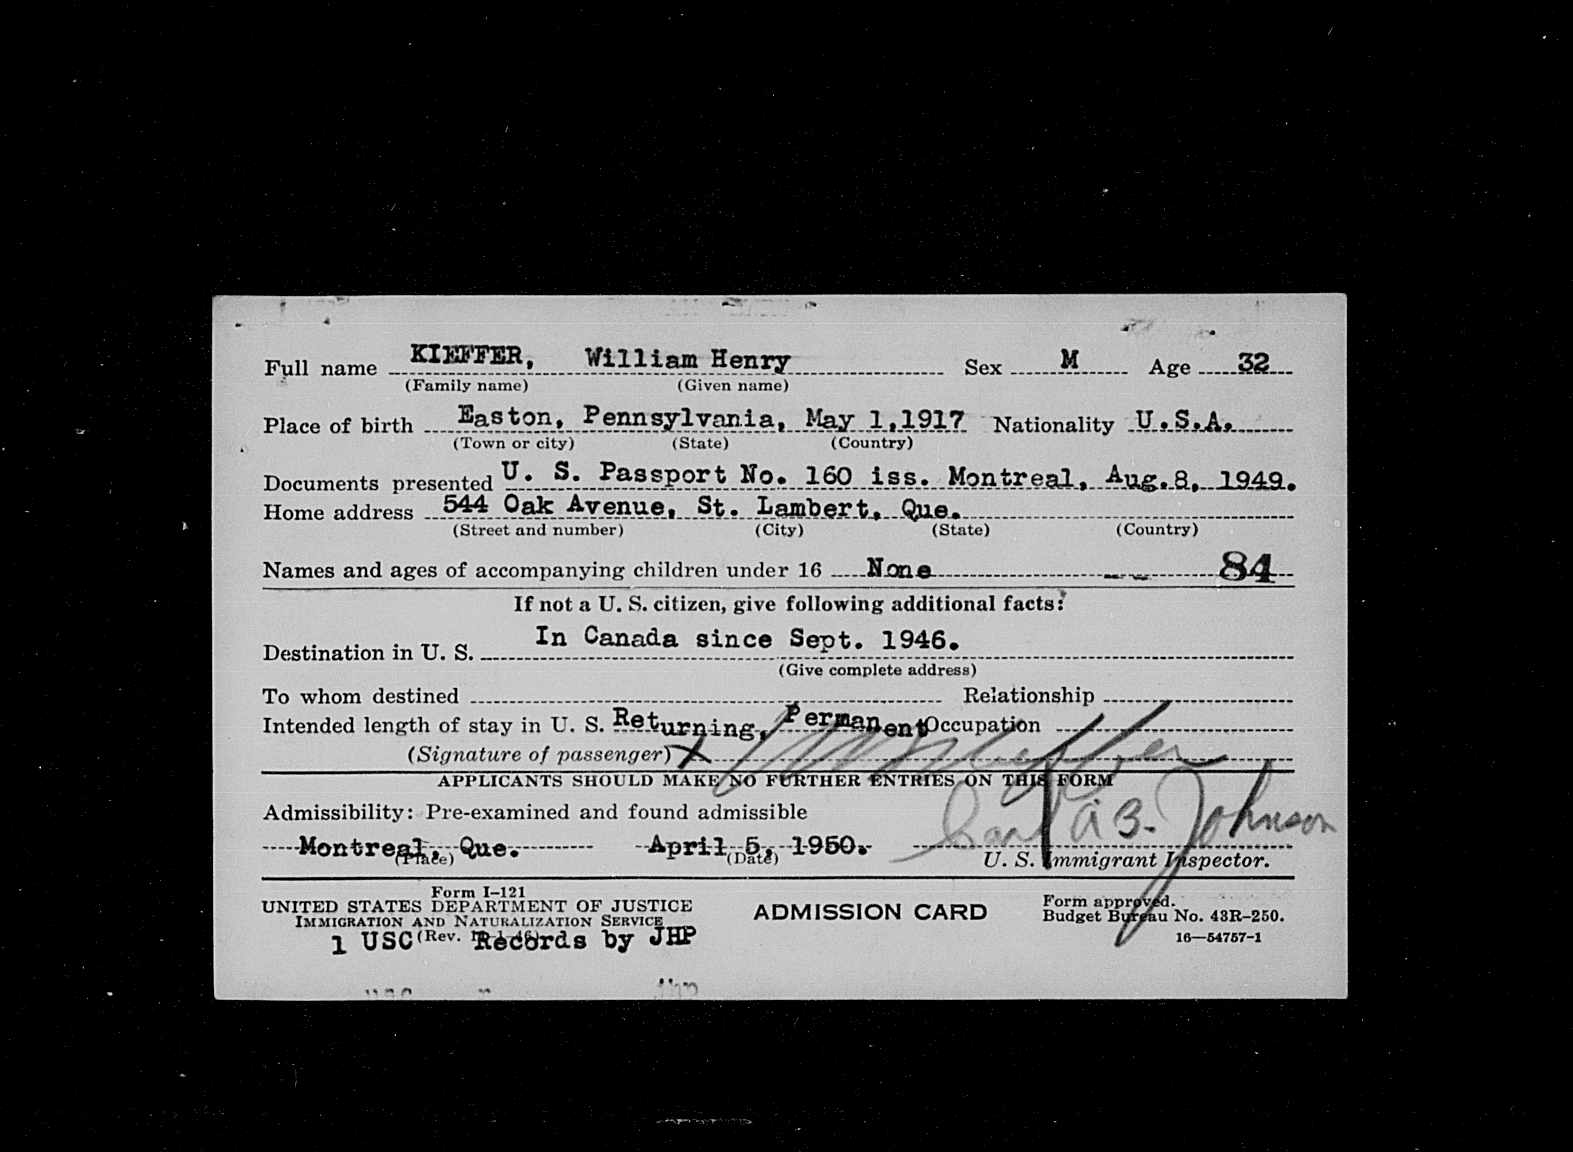 Full name KIEFFER, William Henry Sex M Age 32
(Family name) (Given name)
Place of birth Easton, Pennsylvania, May 1,1917 Nationality U.S.A.
(Town or city) (State) (Country)
Documents presented U. S. Passport No. 160 iss. Montreal, Aug.8, 1949.
Home address 544 Oak Avenue, St. Lambert, Que.
(Street and number) (City) (State) (Country)
Names and ages of accompanying children under 16 None 84
If not a U. S. citizen, give following additional facts:
In Canada since Sept. 1946.
Destination in U. S.
(Give complete address)
To whom destined Relationship
Intended length of stay in U. S. Returning, Permanent Occupation
(Signature of passenger) X Kieffer
APPLICANTS SHOULD MAKE NO FURTHER ENTRIES ON THIS FORM
Admissibility: Pre-examined and found admissible
Carl A B. Johnson
Montreal, Que. April 5, 1950.
(Place) (Date) U. S. Immigrant Inspector.
Form I-121
UNITED STATES DEPARTMENT OF JUSTICE
IMMIGRATION AND NATURALIZATION SERVICE
(Rev.
1 USC Records by JHP
ADMISSION CARD
Form approved.
Budget Bureau No. 43R-250.
16—54757-1